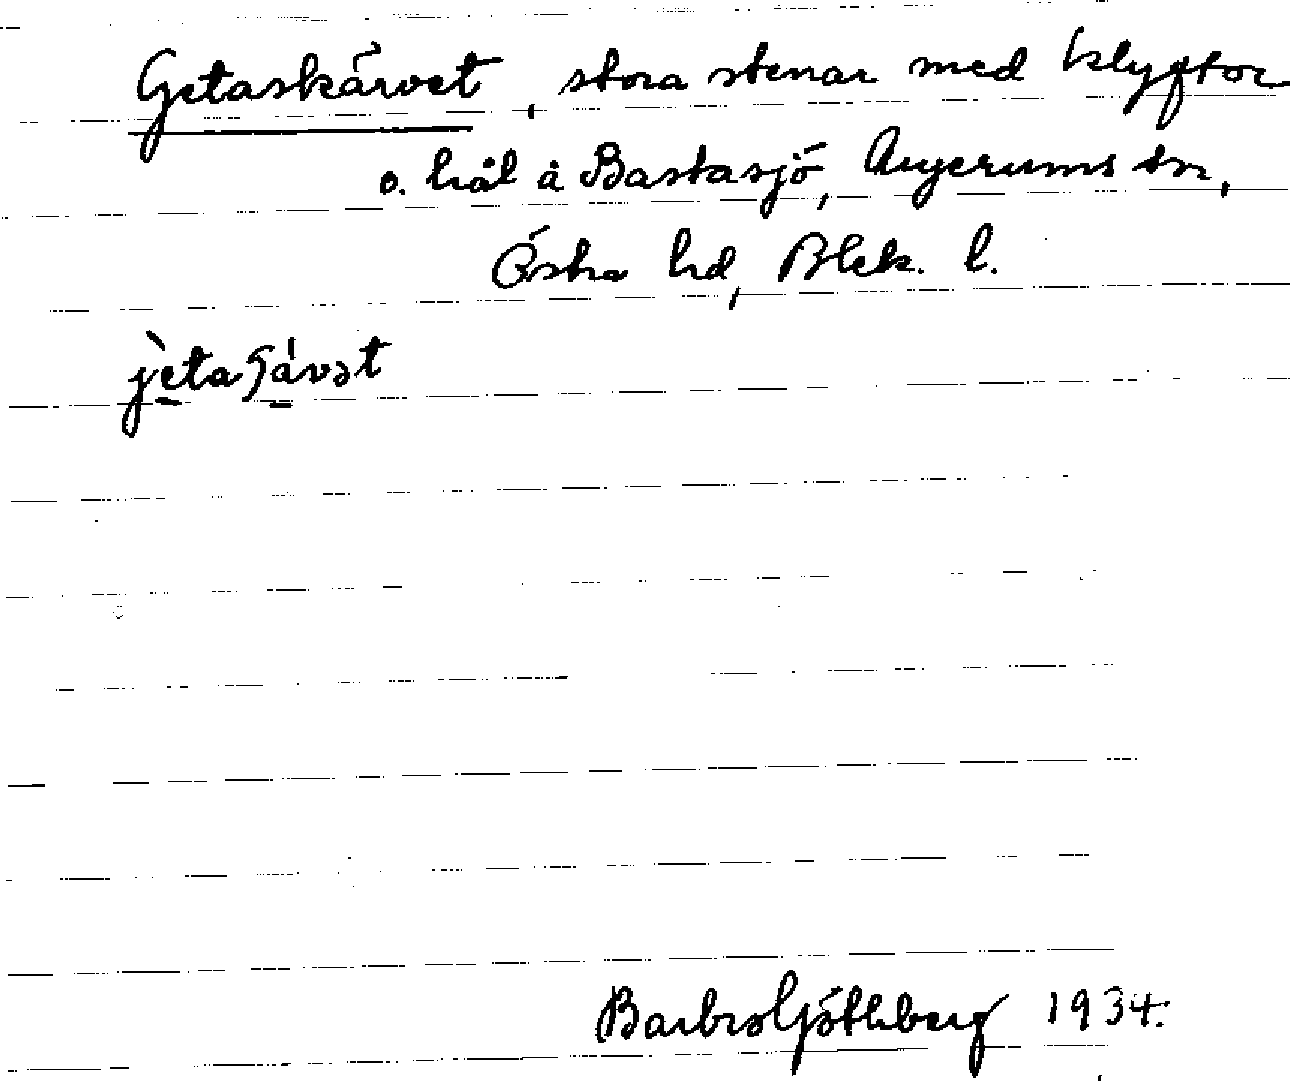 Getaskärvet, stora stenar med klyftor
o. hål å Bastasjö, Augerums sn,
Östra hd, Blek. l.
Barbro Götlberg 1934.